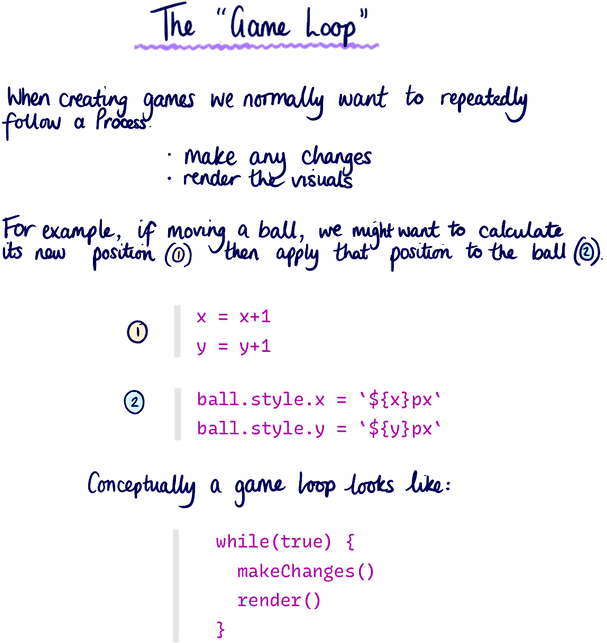 The "Game Loop"
When creating games we normally want to repeatedly
follow a Process.
· make any changes
· render the visuals
For example, if moving a ball, we might want to calculate
its new position (1) then apply that position to the ball (2).
1
x = x+1
y = y+1
2
ball.style.x = `${x}px`
ball.style.y = `${y}px`
Conceptually a game loop looks like:
while(true) {
makeChanges()
render()
}